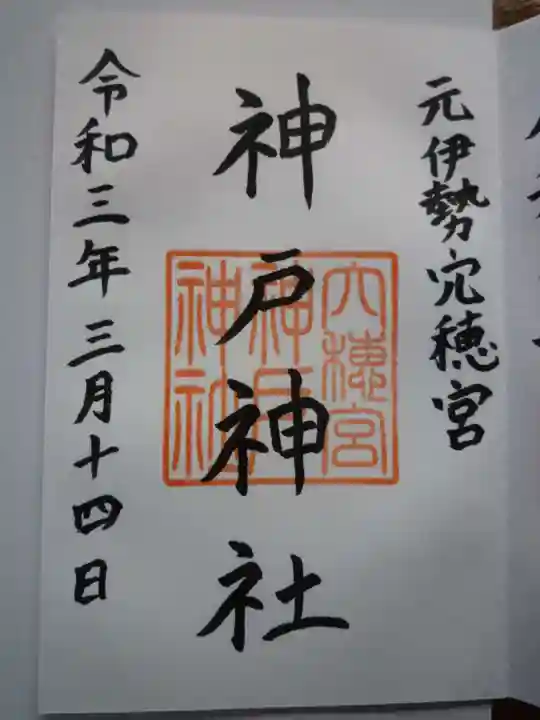 元伊勢穴穂宮
神戸神社
穴穂宮
神戸
神社
令和三年三月十四日